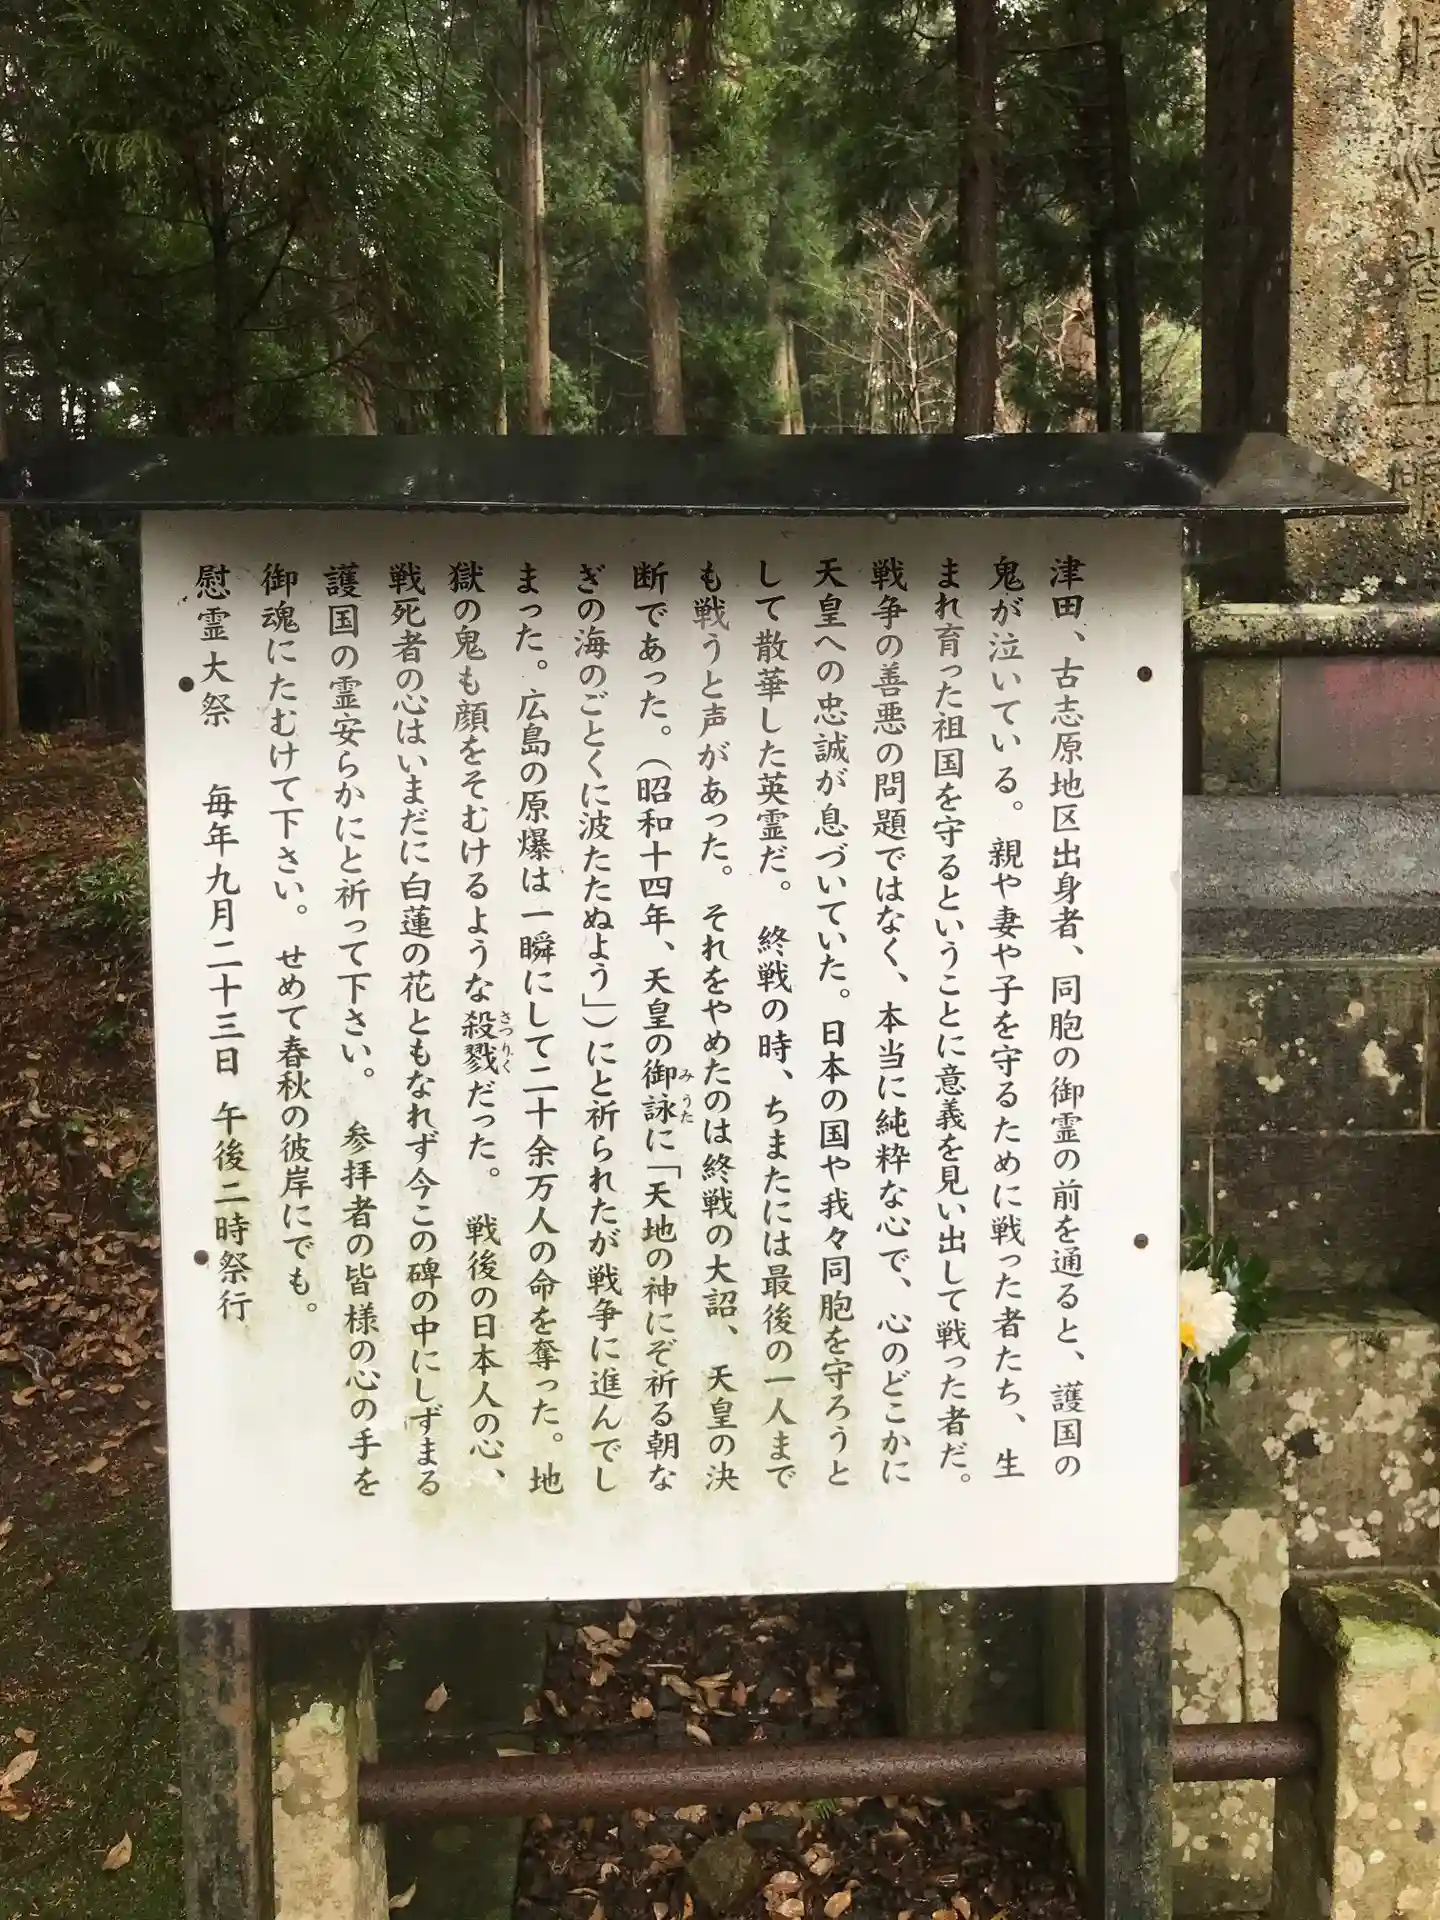 津田、古志原地区出身者、同胞の御霊の前を通ると、護国の
鬼が泣いている。親や妻や子を守るために戦った者たち、生
まれ育った祖国を守るということに意義を見い出して戦った者だ。
戦争の善悪の問題ではなく、本当に純粋な心で、心のどこかに
天皇への忠誠が息づいていた。日本の国や我々同胞を守ろうと
して散華した英霊だ。終戦の時、ちまたには最後の一人まで
も戦うと声があった。それをやめたのは終戦の大詔、天皇の決
断であった。(昭和十四年、天皇の御詠に「天地の神にぞ祈る朝な
みうた
ぎの海のごとくに波たたぬよう」)にと祈られたが戦争に進んでし
まった。広島の原爆は一瞬にして二十余万人の命を奪った。地
獄の鬼も顔をそむけるような殺戮だった。戦後の日本人の心、
さつりく
戦死者の心はいまだに白蓮の花ともなれず今この碑の中にしずまる
護国の霊安らかにと祈って下さい。参拝者の皆様の心の手を
御魂にたむけて下さい。せめて春秋の彼岸にでも。
慰霊大祭 毎年九月二十三日 午後二時祭行